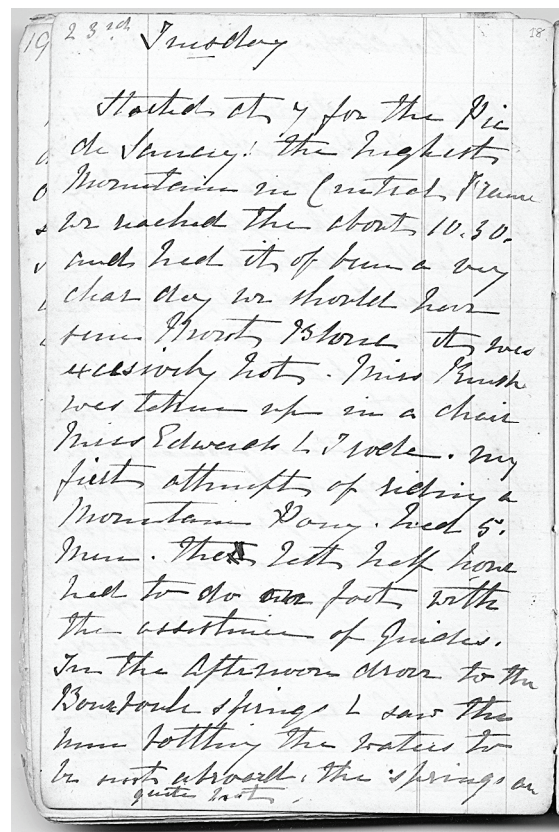 19 23rd Tuesday 18
Started at 7 for the Pic
de Sancey! the highest
Mountain in Central France
we reached the about 10.30.
and had it of been a very
clear day we should have
seen Mont Blanc it was
excesively hot. Miss Rush
was taken up in a chair
Miss Edwards & I rode. my
first attempt of riding a
Mountain Pony. had 5.
Men. the last half hour
had to do on foot with
the assistance of Guides.
In the Afternoon drove to the
Bourboule springs & saw the
men bottling the waters to
be sent abroad, the springs are
quite hot.